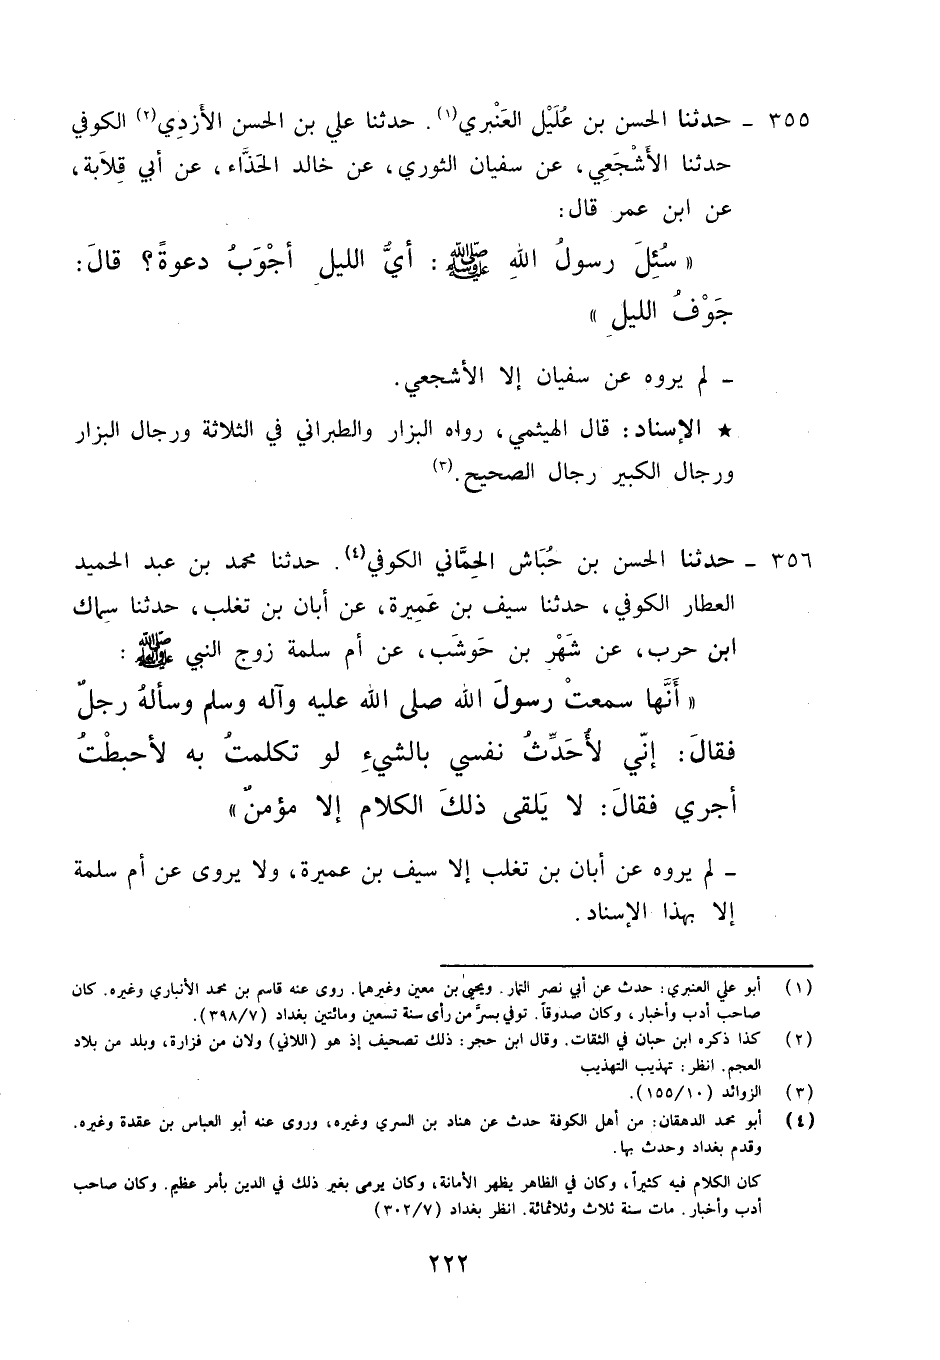 ٣٥٥ ـ حدثنا الحسن بن عُلَيْل العَنْبري(١). حدثنا علي بن الحسن الأَزدِي(٢) الكوفي
حدثنا الأَشْجَعِي، عن سفيان الثوري، عن خالد الحَذَّاء، عن أبي قِلاَبة،
عن ابن عمر قال:
« سُئِلَ رسولُ اللهِ ﷺ : أيُّ الليلِ أجْوَبُ دعوةً؟ قالَ:
جَوْفُ الليلِ »
ـ لم يروه عن سفيان إلا الأشجعي.
★ الإسناد: قال الهيثمي، رواه البزار والطبراني في الثلاثة ورجال البزار
ورجال الكبير رجال الصحيح.(٣)
٣٥٦ ـ حدثنا الحسن بن حُبَاش الحِمَّاني الكوفي(٤). حدثنا محمد بن عبد الحميد
العطار الكوفي، حدثنا سيف بن عَمِيرة، عن أبان بن تغلب، حدثنا سِماك
ابن حرب، عن شَهْر بن حَوشَب، عن أم سلمة زوج النبي ﷺ :
« أَنَّها سمعتْ رسولَ الله صلى الله عليه وآله وسلم وسألهُ رجلٌ
فقالَ: إنّي لأُحَدِّثُ نفسي بالشيءِ لو تكلمتُ به لأحبطْتُ
أجري فقالَ: لا يَلقى ذلكَ الكلام إلا مؤمنٌ »
ـ لم يروه عن أبان بن تغلب إلا سيف بن عميرة، ولا يروى عن أم سلمة
إلا بهذا الإسناد.
(١) أبو علي العنبري: حدث عن أبي نصر التمار. ويحيىٰ بن معين وغيرهما. روى عنه قاسم بن محمد الأنباري وغيره. كان
صاحب أدب وأخبار، وكان صدوقاً. توفي بسرَّ من رأى سنة تسعين ومائتين بغداد (٣٩٨/٧).
(٢) كذا ذكره ابن حبان في الثقات. وقال ابن حجر: ذلك تصحيف إذ هو (اللاني) ولان من فزارة، وبلد من بلاد
العجم. انظر: تهذيب التهذيب
(٣) الزوائد (١٥٥/١٠).
(٤) أبو محمد الدهقان: من أهل الكوفة حدث عن هناد بن السري وغيره، وروى عنه أبو العباس بن عقدة وغيره.
وقدم بغداد وحدث بها.
كان الكلام فيه كثيراً، وكان في الظاهر يظهر الأمانة، وكان يرمى بغير ذلك في الدين بأمر عظيم. وكان صاحب
أدب وأخبار. مات سنة ثلاث وثلاثمائة. انظر بغداد (٣٠٢/٧)
٢٢٢